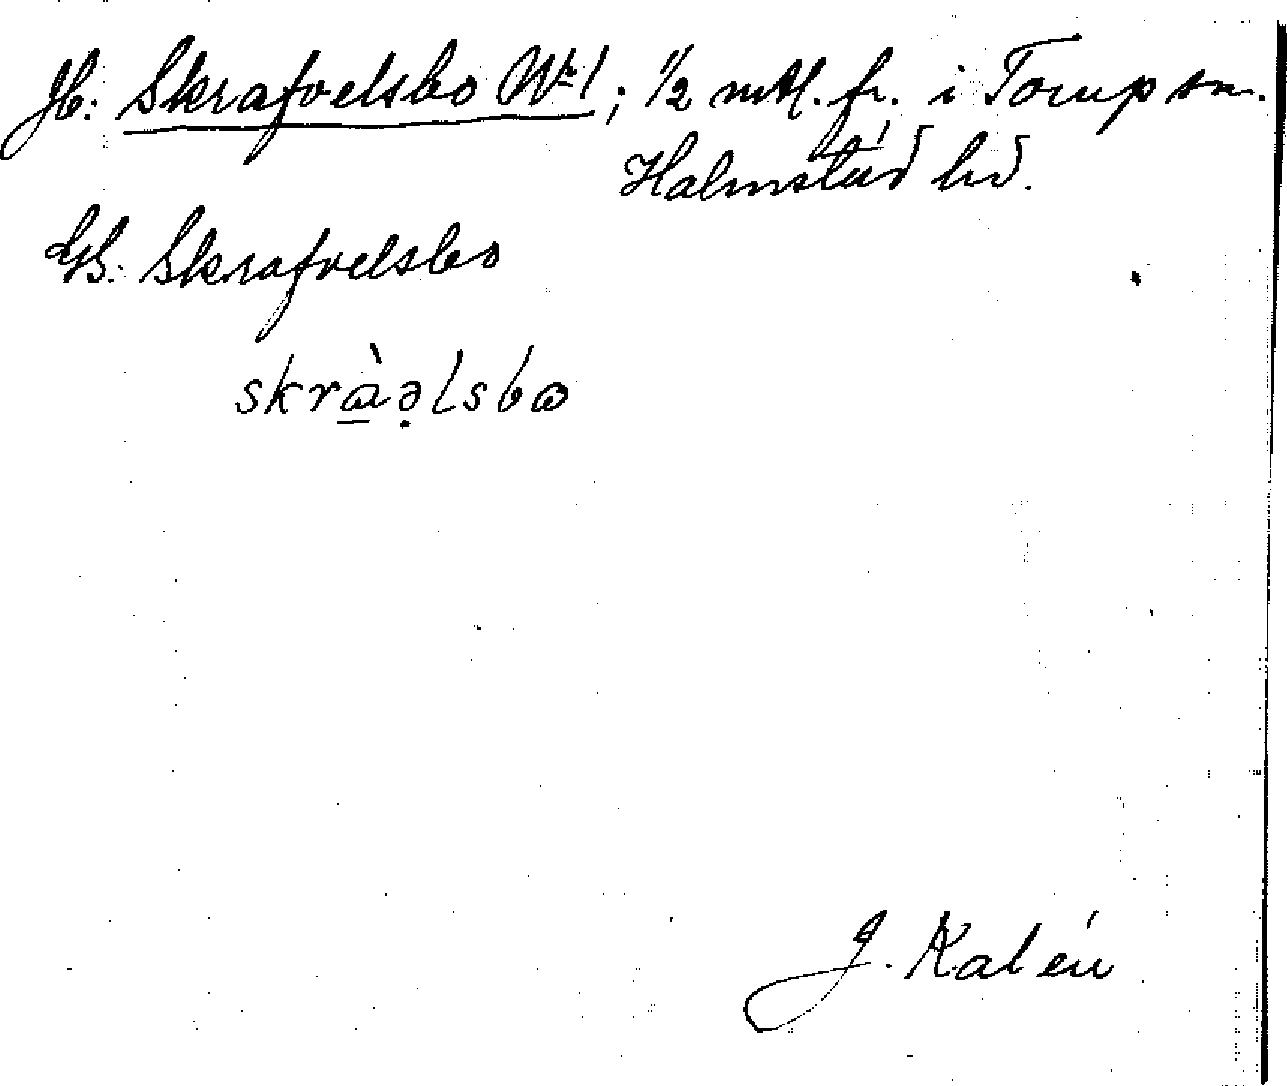 Jb: Skrafvelsbo No 1; 1/2 mtl. fr. i Torup sn.
Halmstad hd.
GS: Skrafvelsbo
skràəlsbω
J. Kalén